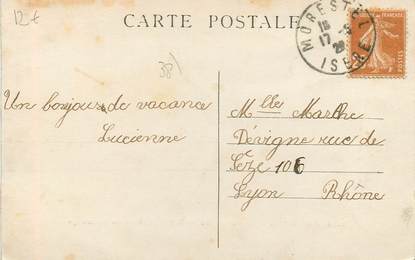 12€
CARTE POSTALE
MORESTEL
16
17 -8
26
ISERE
FRANÇAISE
POSTES
38
Un bonjour de vacance
Lucienne
Mlle Marthe
Dévigne rue de
Sèze 106
Lyon Rhône